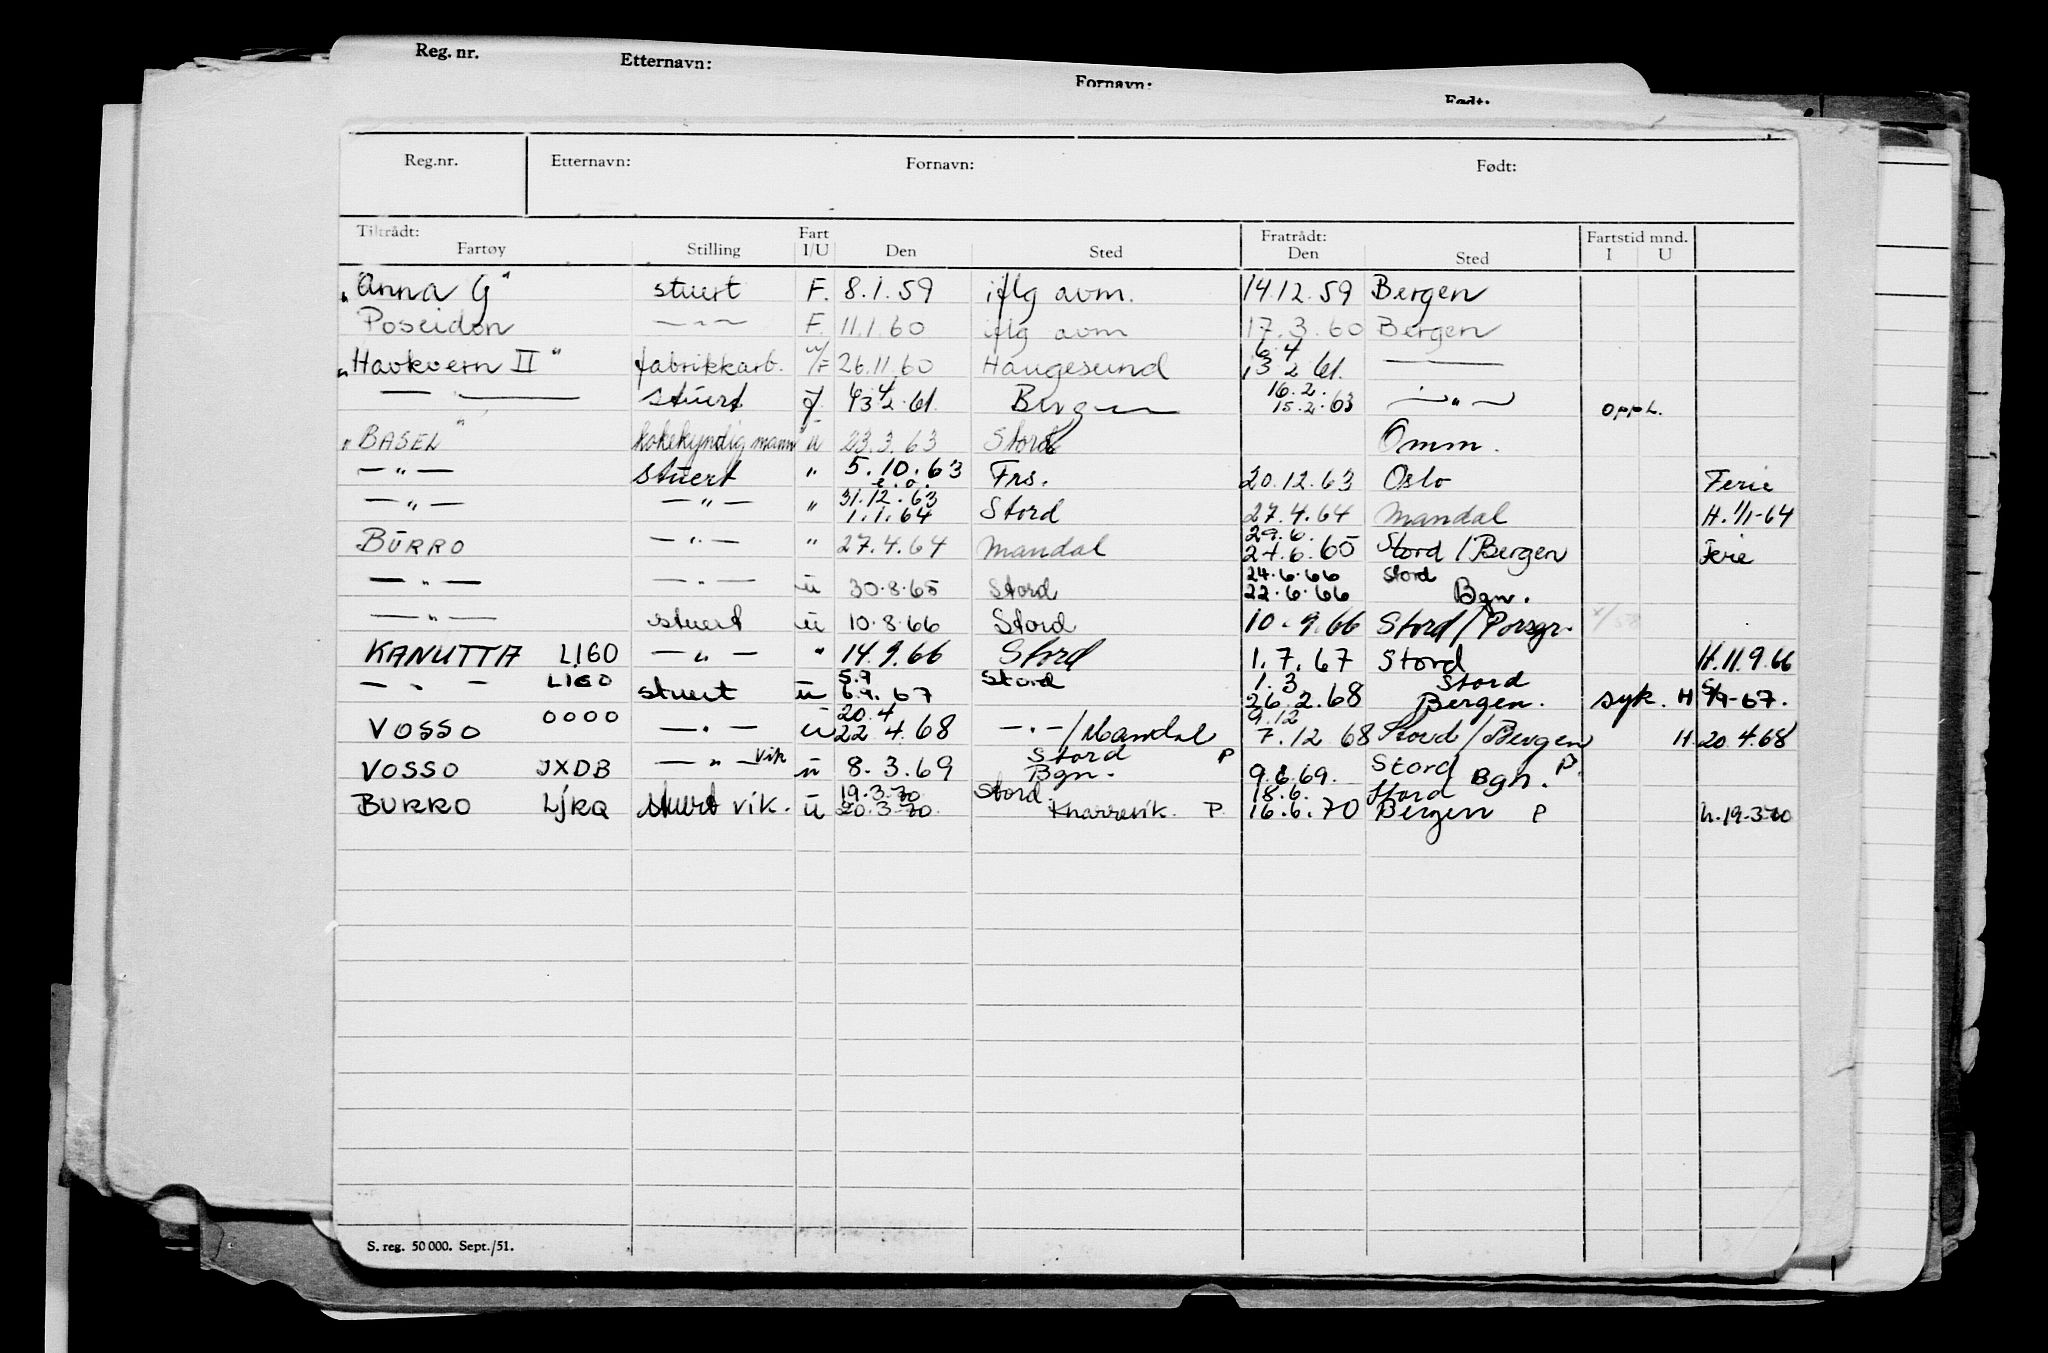 Reg. nr. Etternavn: Fornavn: Født:
Reg.nr. Etternavn: Fornavn: Født:
Tiltrådt: Fart Fratrådt: Fartstid mnd.
Fartøy Stilling I/U Den Sted Den Sted I U
"Anna G" stuert F. 8.1.59 iflg avm. 14.12.59 Bergen
Poseidon —"— F. 11.1.60 iflg avm 17.3.60 Bergen
6.4
"Havkvern II" fabrikkarb. u/F 26.11.60 Haugesund 13 2 61. ——
16.2.
— " — stuert f 13 2.61. Bergen 15.2.63 —"— oppl.
"BASEL" kokekyndig mann ü 23.3.63 Stord Omm.
—"— stuert " 5.10.63 Frs. 20.12.63 Oslo Ferie
e.o.
31.12.63
—"— —"— " 1.1.64 Stord 27.4.64 Mandal H. 1/1-64
29.6.
BURRO —"— " 27.4.64 Mandal 27.6.65 Stord / Bergen Ferie
24.6.66 Stord
—"— —"— ü 30.8.65 Stord 22.6.66 Bgn.
—"— stuert ü 10.8.66 Stord 10.9.66 Stord / Porsgr.
KANUTTA LIGO —"— " 14.9.66 Stord 1.7.67 Stord H. 11.9.66
5.9 Stord 1.3 Stord
—"— LIGO stuert ü 6.9.67 26.2.68 Bergen. syk. H 5/9-67.
20.4 9.12
VOSSO OOOO —"— ü 22 4.68 —"— / Mandal 7.12 68 Stord / Bergen H. 20.4.68
Stord P Stord P.
VOSSO JXDB —"— vik ü 8.3.69 Bgn. 9.6.69. Bgn.
19.3.70 Stord. 18.6. Stord
BURRO LJRQ stuert vik. ü 20.3.70. Knarrevik. P. 16.6.70 Bergen P h. 19-3-70
S. reg. 50 000. Sept./51.